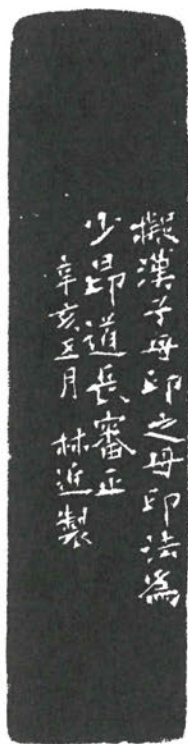 擬漢子母印之母印法為
少昂道長審正
辛亥五月 林近製